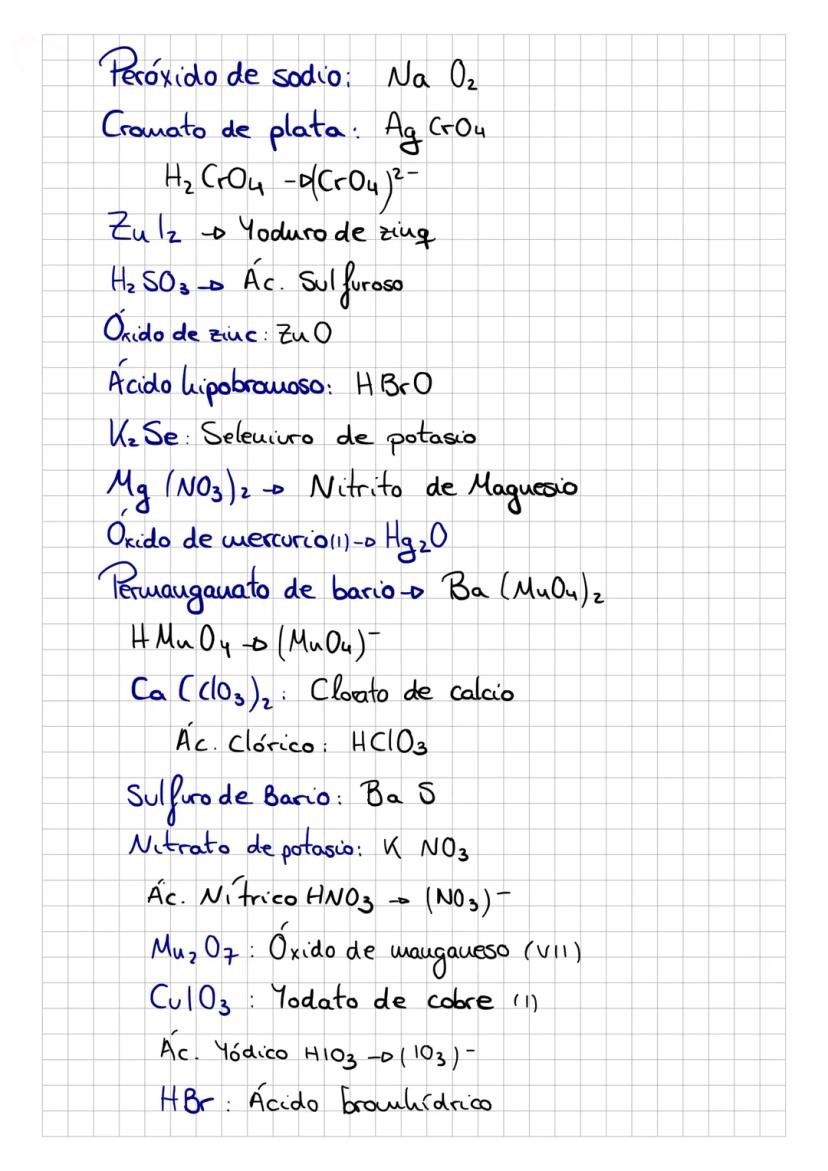 Peróxido de sodio: Na O₂
Cromato de plata: Ag CrO₄
H₂ CrO₄ → (CrO₄)²⁻
Zn I₂ → Yoduro de zinq
H₂ SO₃ → Ác. Sulfuroso
Óxido de zinc: ZnO
Ácido hipobromoso: HBrO
K₂ Se: Seleniuro de potasio
Mg (NO₃)₂ → Nitrito de Magnesio
Óxido de mercurio(I) → Hg₂O
Permanganato de bario → Ba (MnO₄)₂
HMnO₄ → (MnO₄)⁻
Ca (ClO₃)₂: Clorato de calcio
Ác. Clórico: HClO₃
Sulfuro de Bario: Ba S
Nitrato de potasio: K NO₃
Ác. Nítrico HNO₃ → (NO₃)⁻
Mn₂O₇: Óxido de manganeso (VII)
CuIO₃: Yodato de cobre (I)
Ác. Yódico HIO₃ → (IO₃)⁻
HBr: Ácido bromhídrico